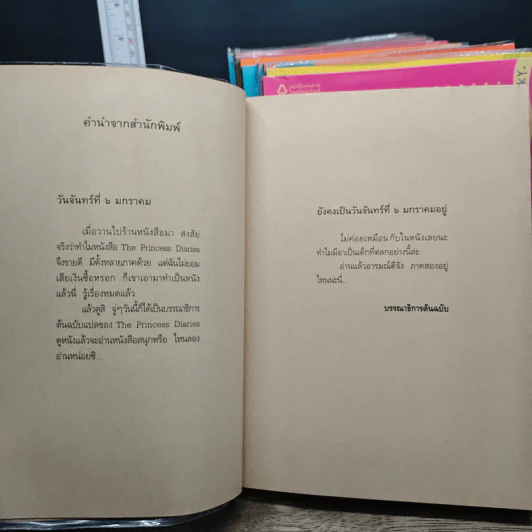 คำนำจากสำนักพิมพ์
วันจันทร์ที่ ๖ มกราคม
เมื่อวานไปร้านหนังสือมา สงสัย
จริงว่าทำไมหนังสือ The Princess Diaries
จึงขายดี มีตั้งหลายภาคด้วย แต่ฉันไม่ยอม
เสียเงินซื้อหรอก ก็เขาเอามาทำเป็นหนัง
แล้วนี่ รู้เรื่องหมดแล้ว
แล้วดูสิ จู่ๆวันนี้ก็ได้เป็นบรรณาธิการ
ต้นฉบับแปลของ The Princess Diaries
ดูหนังแล้วจะอ่านหนังสือสนุกหรือ ไหนลอง
อ่านหน่อยซิ...
ยังคงเป็นวันจันทร์ที่ ๖ มกราคมอยู่
ไม่ค่อยเหมือนกับในหนังเลยนะ
ทำไมมีอาเป็นเด็กที่ตลกอย่างนี้ล่ะ
อ่านแล้วอารมณ์ดีจัง ภาคสองอยู่
ไหนละนี่...
บรรณาธิการต้นฉบับ
KY.